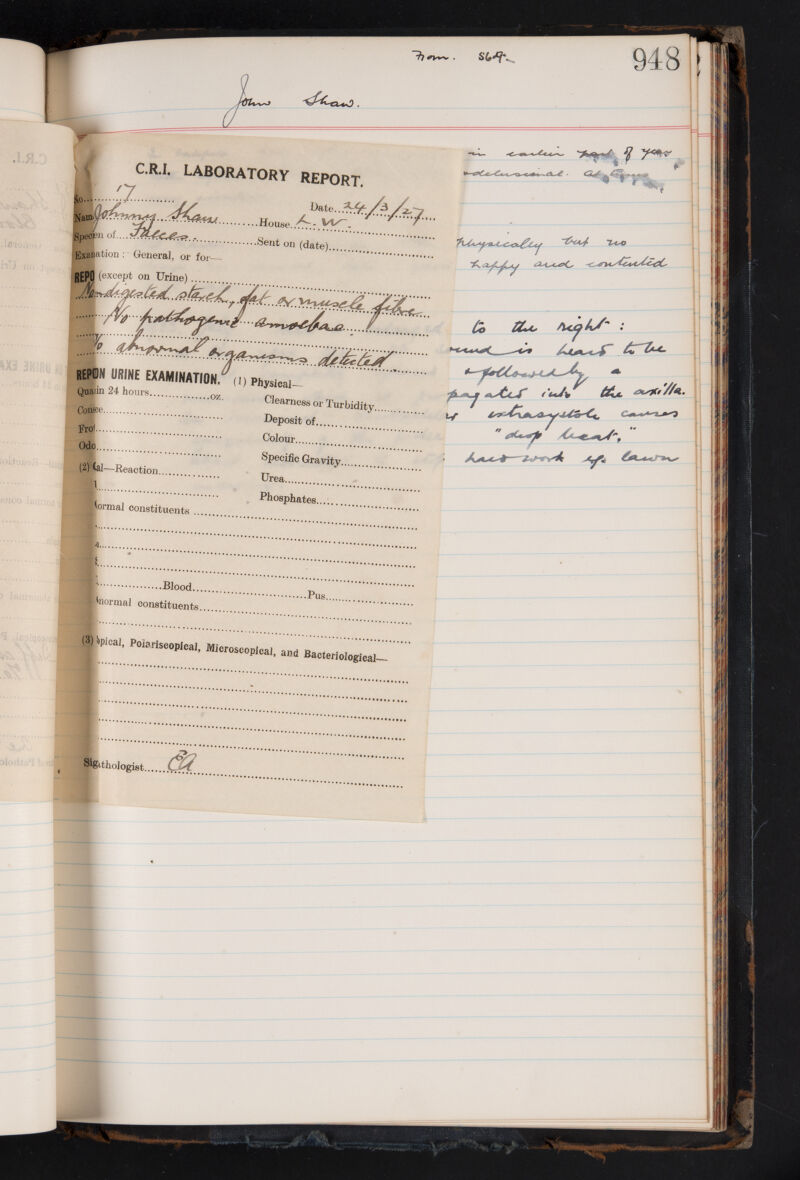 948
From. 569.
John Shaw.
in earlier part of year
delusional. at
physically but no
happy and contented
to the right:
is heard to be
followed by a
pagated into the axilla.
extrasystole causes
"drop beat."
hard work eg. lawn
C.R.I. LABORATORY REPORT.
No. 17
Date 24/3/27
Nam Johnny Shaw House L.W.
Specien of Faeces. Sent on (date)
Exaination: General, or for—
REPO (except on Urine)
No undigested starch, fat or muscle fibre
No pathogenic amoebae
No abnormal organisms detected.
REPON URINE EXAMINATION. (1) Physical—
Quain 24 hours oz. Clearness or Turbidity
Consce Deposit of
Fro Colour
Odo Specific Gravity
(2) cal—Reaction Urea
Phosphates
ormal constituents
Blood Pus
normal constituents
(3) opical, Polariscopical, Microscopical, and Bacteriological—
Sigathologist EA